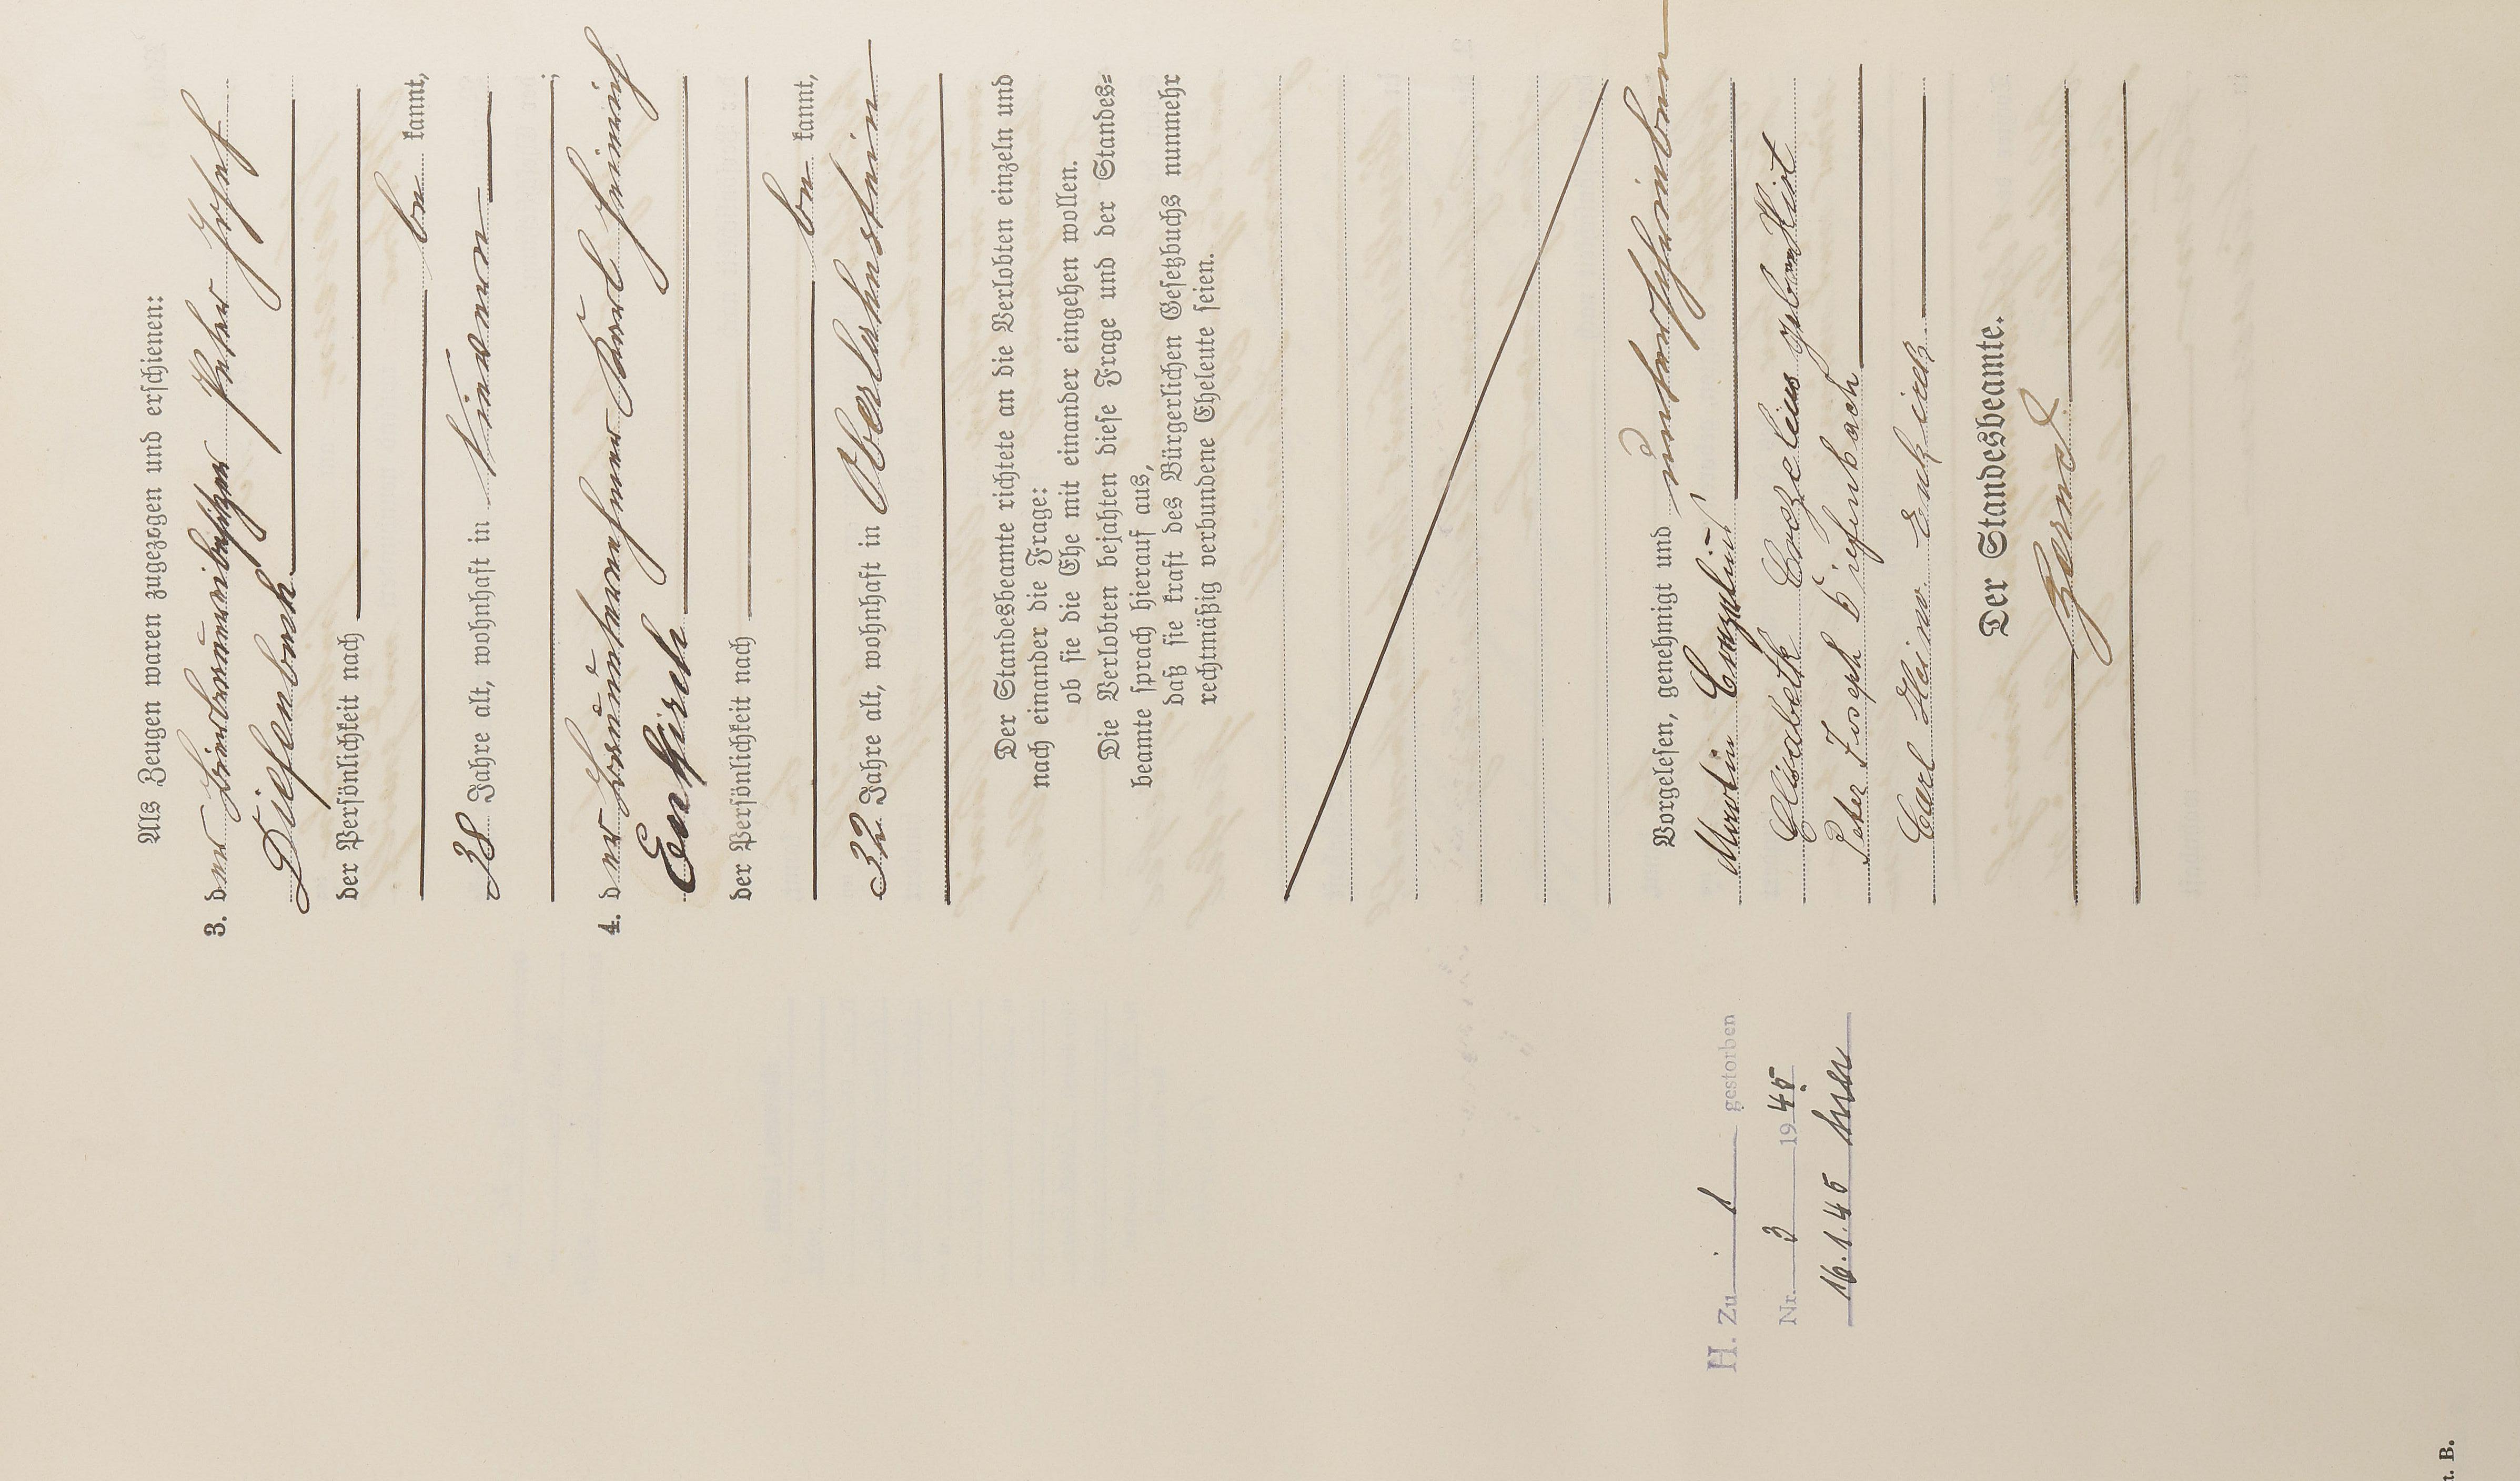 Als Zeugen waren zugezogen und erschienen:
3. der Bierbrauereibesitzer Peter Josef
Diefenbach
der Persönlichkeit nach
be kannt,
38 Jahre alt, wohnhaft in Nievern
4. der Bauunternehmer Karl Heinrich
Enkirch
der Persönlichkeit nach
be kannt,
32 Jahre alt, wohnhaft in Oberlahnstein
Der Standesbeamte richtete an die Verlobten einzeln und
nach einander die Frage:
ob sie die Ehe mit einander eingehen wollen.
Die Verlobten bejahten diese Frage und der Standes=
beamte sprach hierauf aus,
daß sie kraft des Bürgerlichen Gesetzbuchs nunmehr
rechtmäßig verbundene Eheleute seien.
Vorgelesen, genehmigt und unterschrieben
Martin Crezelius
Elisabeth Crezelius geboren
Peter Joseph Diefenbach
Carl Heinr. Enkirch
Der Standesbeamte.
H. Zu 1 gestorben
Nr. 3 1945
16.1.45 hier
n. B.